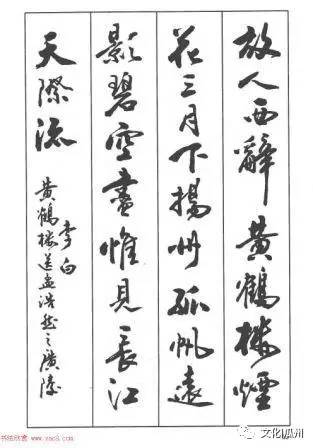 故人西辭黄鶴樓煙
花三月下揚州孤帆遠
影碧空盡惟見長江
天際流
李白
黄鶴樓送孟浩然之廣陵
书法欣赏
www.yac8.com
文化瓜州